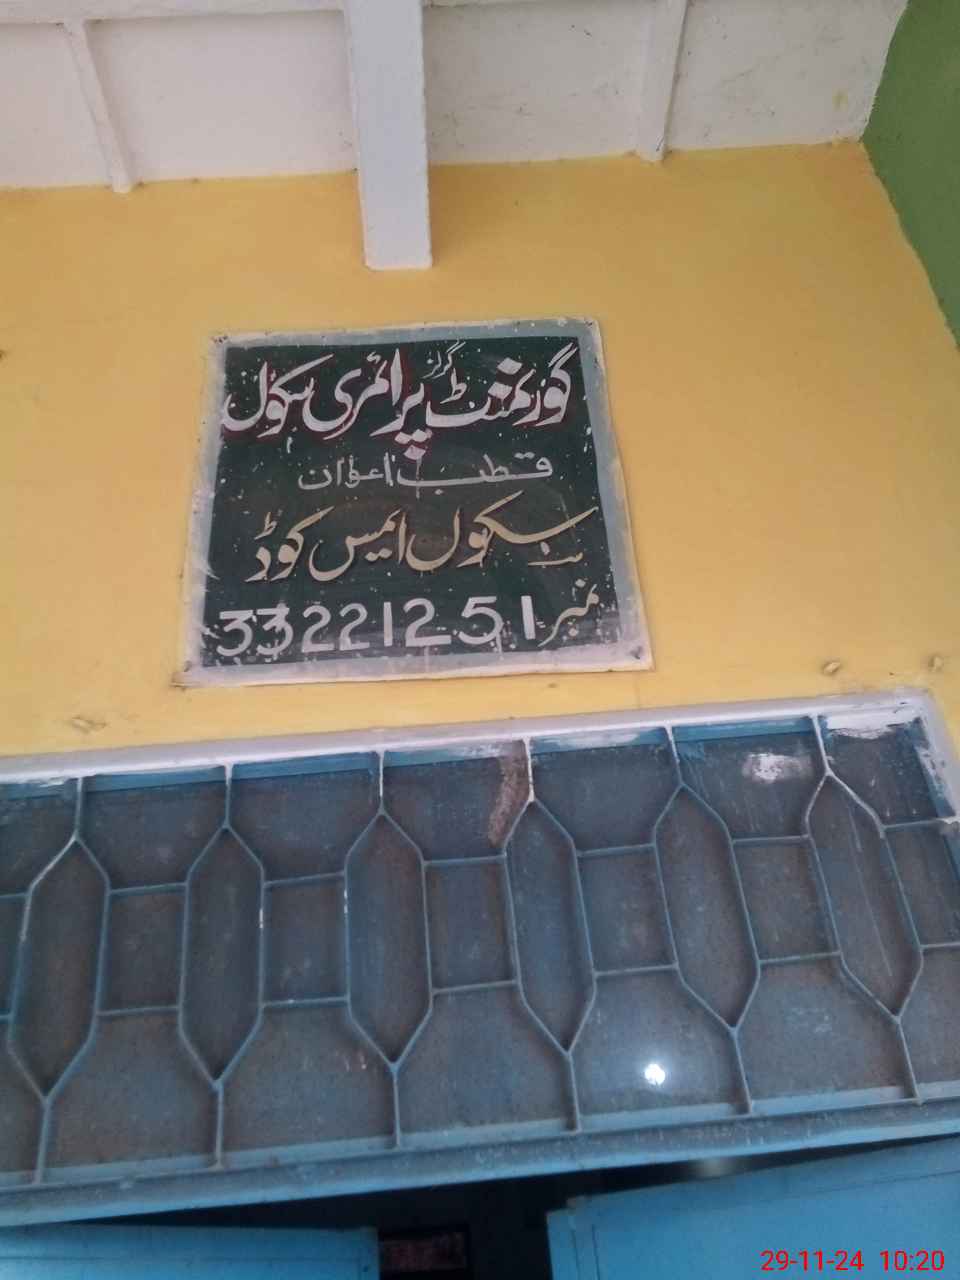 گورنمنٹ گرلز پرائمری سکول
قطب اعوان
سکول ایمس کوڈ
نمبر 33221251
29-11-24 10:20